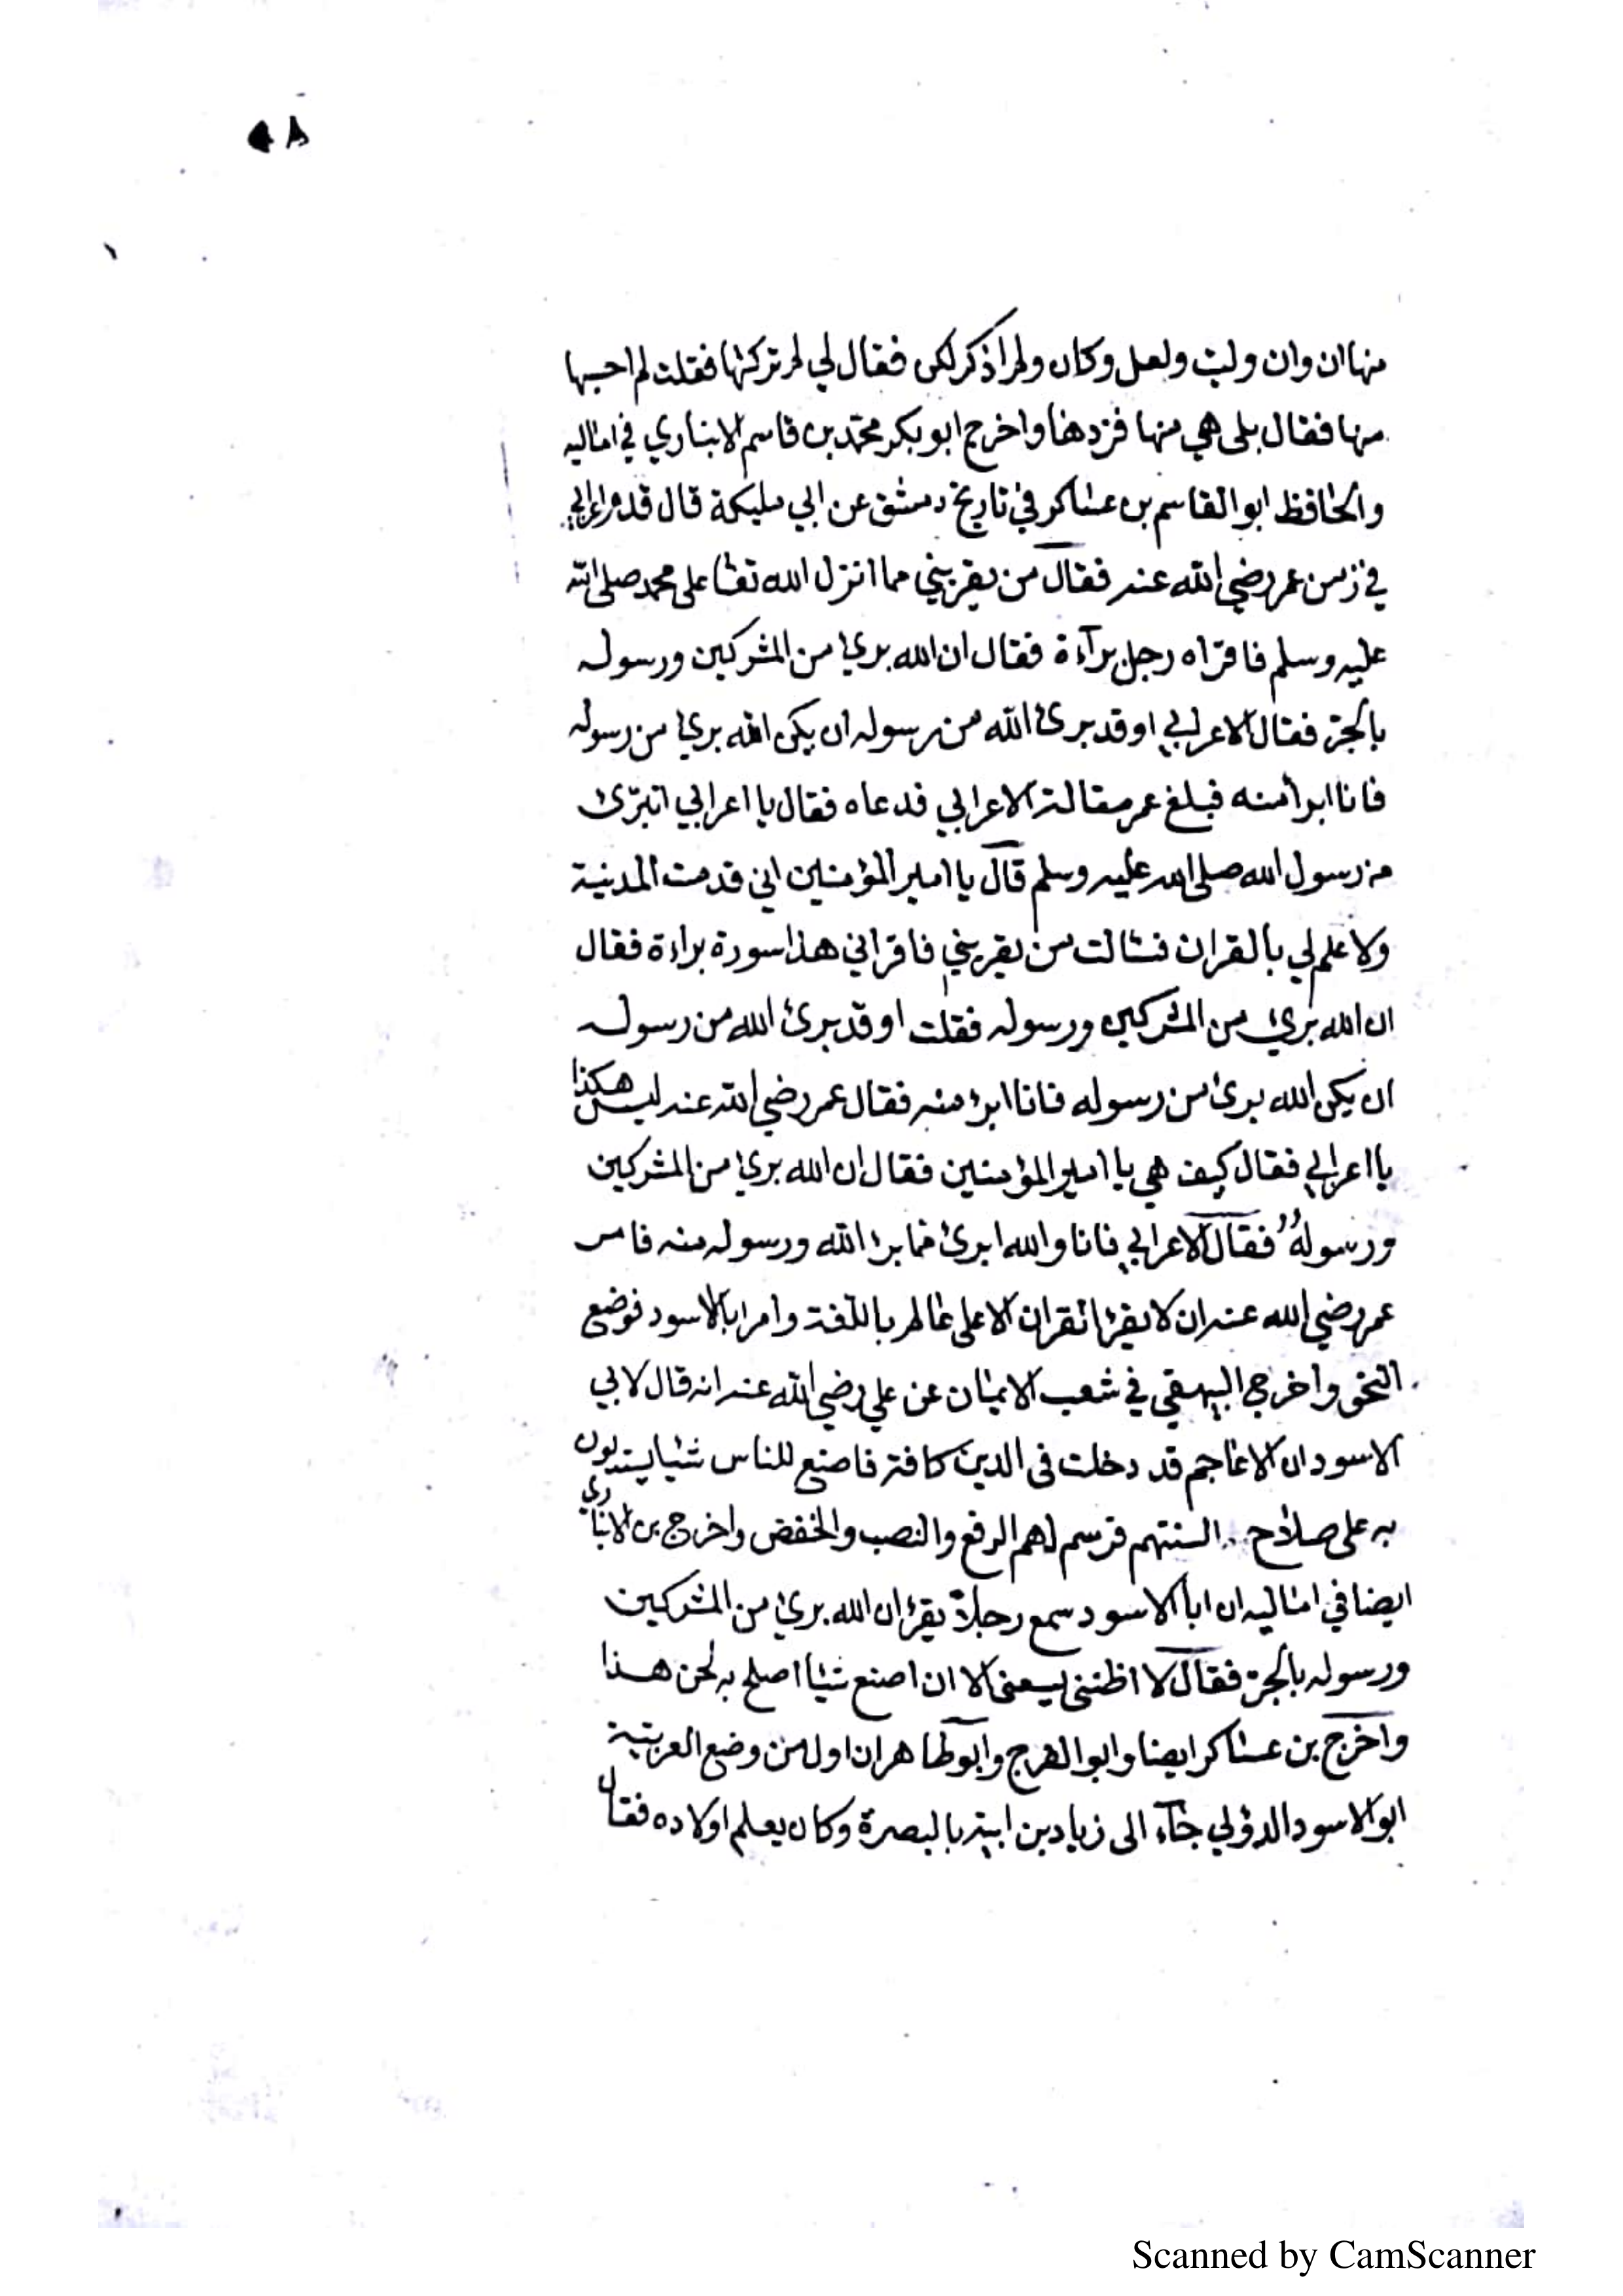 ٥٨
منها ان وان وليت ولعل وكان ولم اذكر لكن فقال لي لم تركتها فقلت لم احسبها
منها فقال بلى هي منها فزدها واخرج ابو بكر محمد بن قاسم الانباري في اماليه
والحافظ ابو القاسم بن عساكر في تاريخ دمشق عن ابي مليكة قال قدم اعرابي
في زمن عمر رضي الله عنه فقال من يقريني مما انزل الله تعا على محمد صلى الله
عليه وسلم فاقراه رجل برآءة فقال ان الله برئ من المشركين ورسوله
بالجرّ فقال الاعرابي اوقد برئ الله من رسوله ان يكن الله برئ من رسوله
فانا ابرأ منه فبلغ عمر مقالة الاعرابي فدعاه فقال يا اعرابي اتبرّئ
من رسول الله صلى الله عليه وسلم قال يا امير المؤمنين اني قدمت المدينة
ولا علم لي بالقران فسالت من يقريني فاقراني هذا سورة براءة فقال
ان الله برئ من المشركين ورسوله فقلت اوقد برئ الله من رسوله
ان يكن الله برئ من رسوله فانا ابرء منه فقال عمر رضي الله عنه ليس هكذا
يا اعرابي فقال كيف هي يا امير المؤمنين فقال ان الله برئ من المشركين
ورسولهُ فقال الاعرابي فانا والله ابرئ مما برء الله ورسوله منه فامر
عمر رضي الله عنه ان لا يقرأ القران الا على عالم باللغة وامر ابا الاسود فوضع
النحو واخرج البيهقي في شعب الايمان عن علي رضي الله عنه انه قال لابي
الاسود ان الاعاجم قد دخلت في الدين كافة فاصنع للناس شيئا يستدلون
به على صلاح السنتهم فرسم لهم الرفع والنصب والخفض واخرج بن الانباري
ايضا في اماليه ان ابا الاسود سمع رجلاً يقرأ ان الله برئ من المشركين
ورسوله بالجرّ فقال لا اظنني يسعني الا ان اصنع شيئا اصلح به لحن هذا
واخرج بن عساكر ايضا وابو الفرج وابو طاهر ان اول من وضع العربية
ابو الاسود الدؤلي جآء الى زياد بن ابيه بالبصرة وكان يعلم اولاده فقال
Scanned by CamScanner